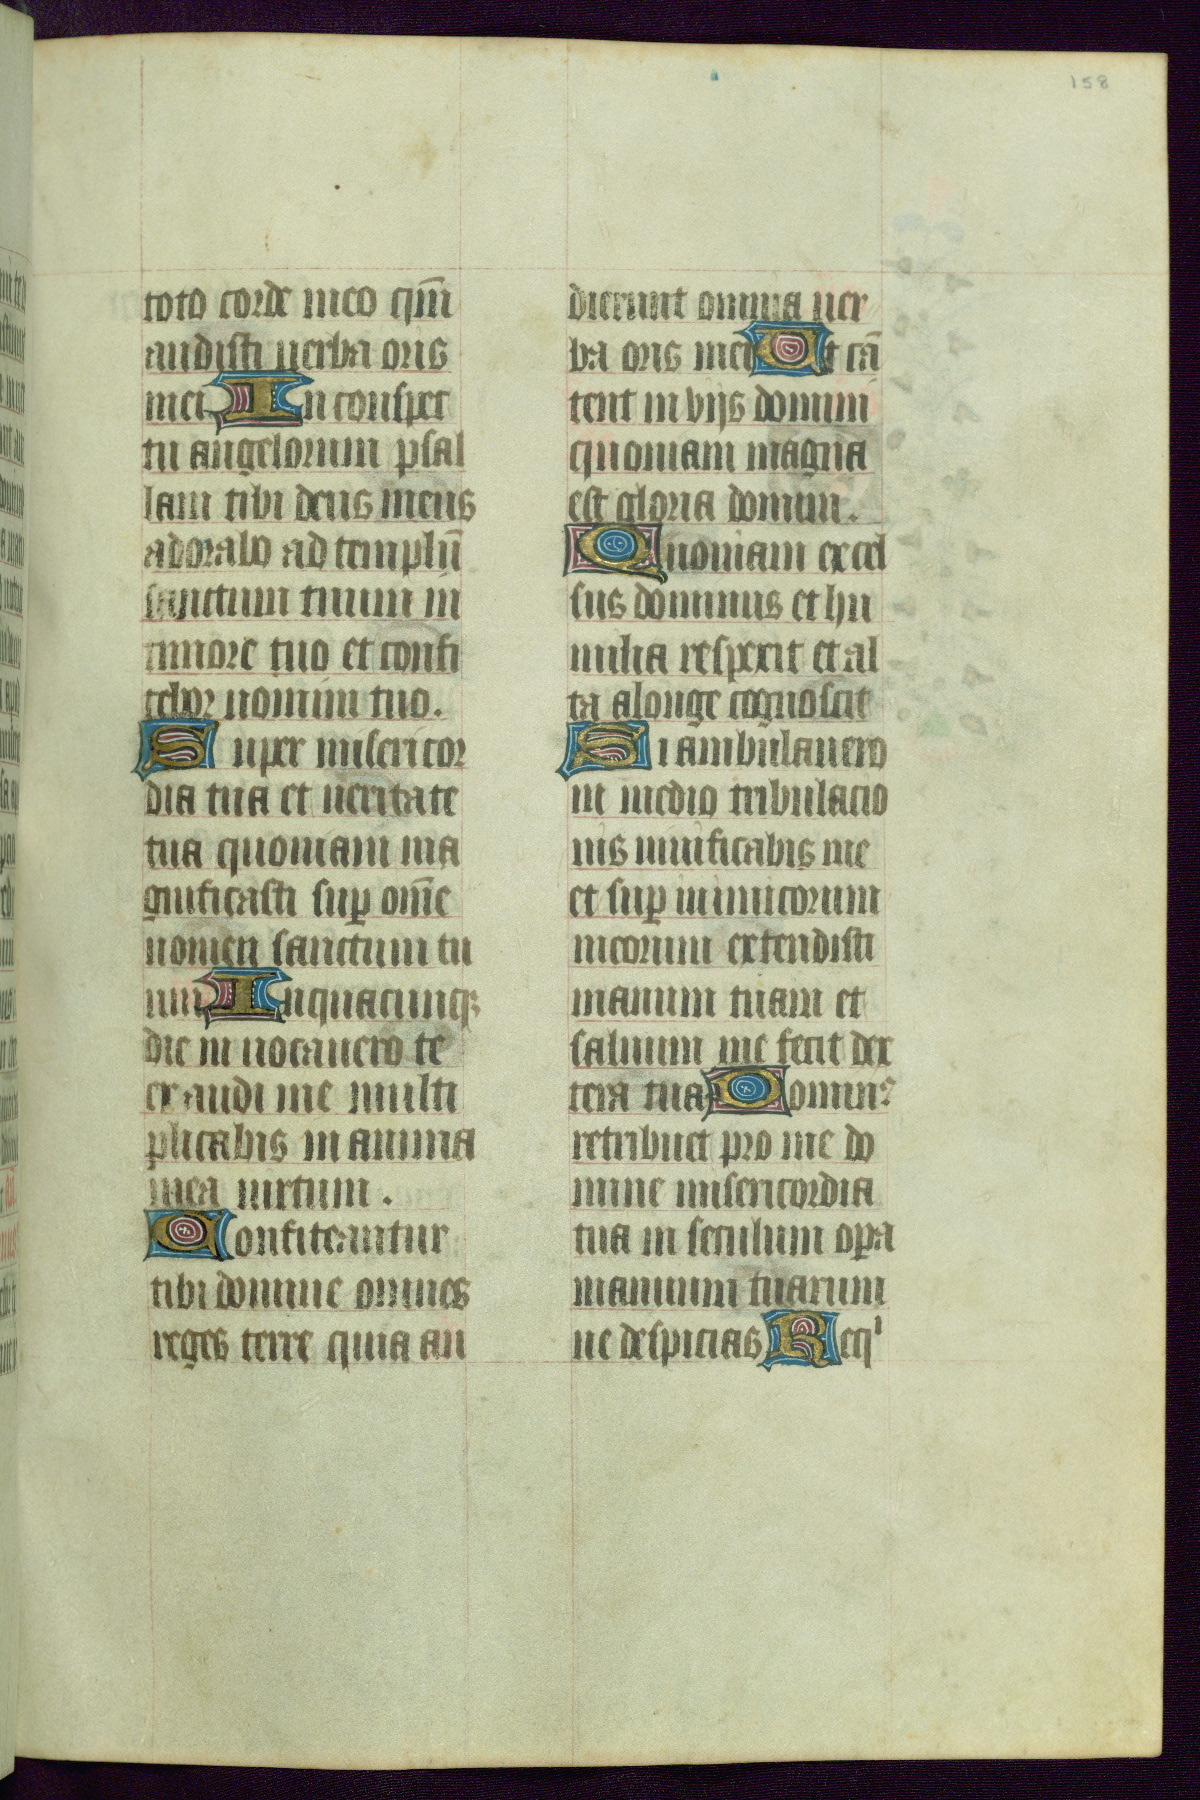 158
toto corde meo qm̄
audisti uerba oris
mei In conspec
tu angelorum psal
lam tibi deus meus
adorabo ad templū
sanctum tuum in
timore tuo et confi
tebor nomini tuo.
Super misericor
dia tua et ueritate
tua quoniam ma
gnificasti suꝑ om̄e
nomen sanctum tu
um Inquacunqꝫ
die in uocauero te
exaudi me multi
plicabis in anima
mea uirtum.
Confiteantur
tibi domine omnes
reges terre quia au
dierunt omnia uer
ba oris mei Et cā
tent in vijs domini
quoniam magna
est gloria domini.
Quoniam excel
sus dominus et hu
milia respexit et al
ta alonge cognoscit
Si ambulauero
in medio tribulacio
nis uiuificabis me
et suꝑ inimicorum
meorum extendisti
manum tuam et
saluum me fecit dex
tera tua Dominꝰ
retribuet pro me do
mine misericordia
tua in seculum oꝑa
manuum tuarum
ne despicias Reqⁱ